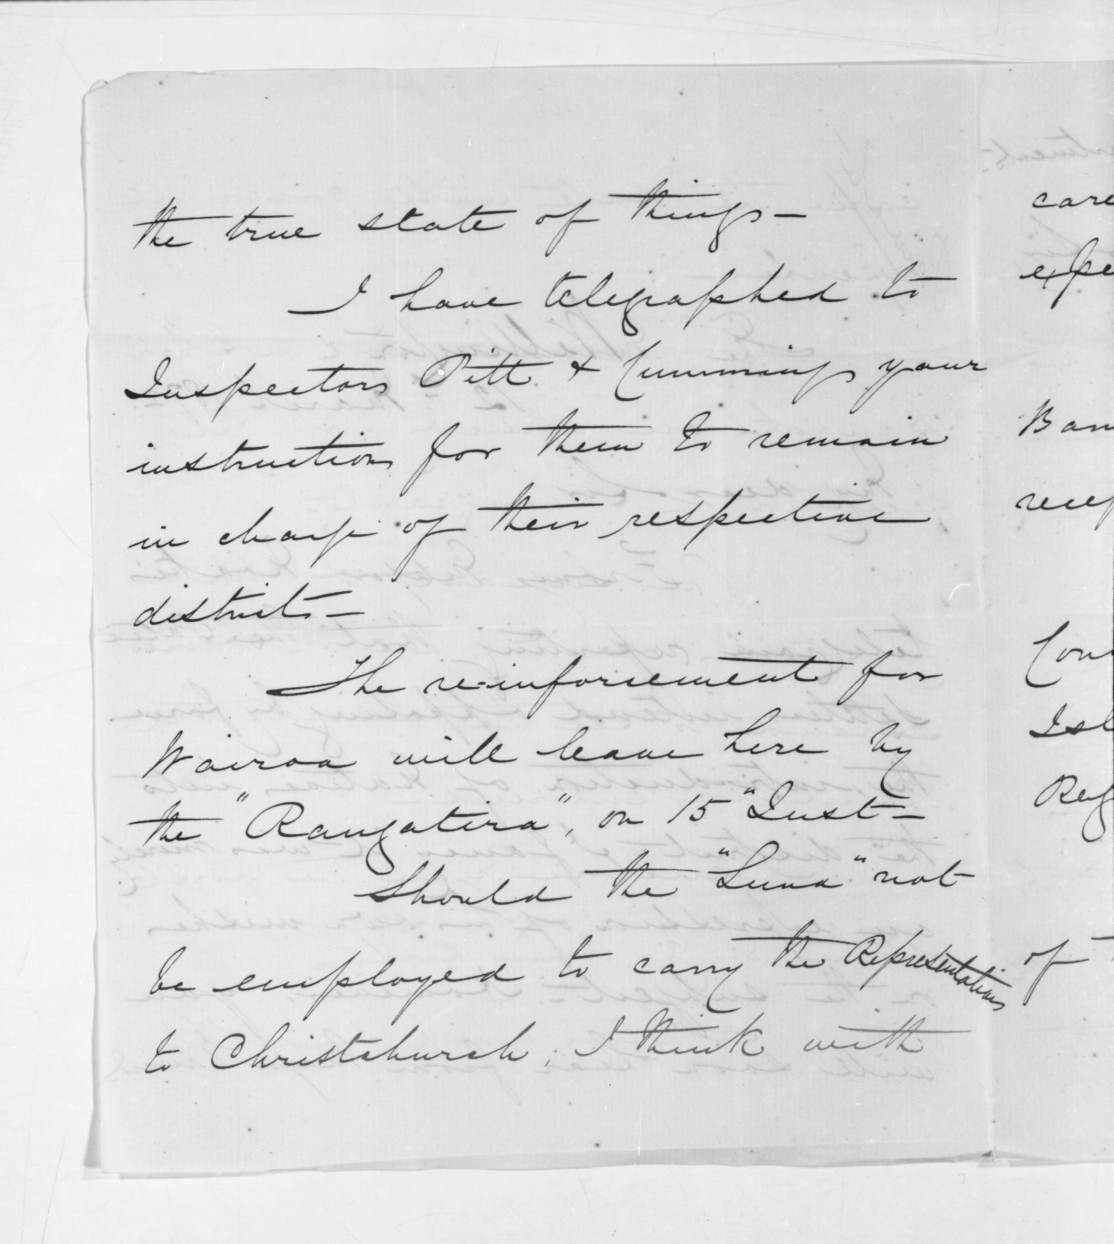 the true state of things —
I have telegraphed to
Inspectors Pitt & Cummings your
instructions for them to remain
in charge of their respective
districts —
The re-inforcement for
Wairoa will leave here by
the "Rangatira", on 15" Inst —
Should the "Luna" not
be employed to carry the Representatives
to Christchurch, I think with
care
expe
Bam
recep
Con
Isl
Reg
of